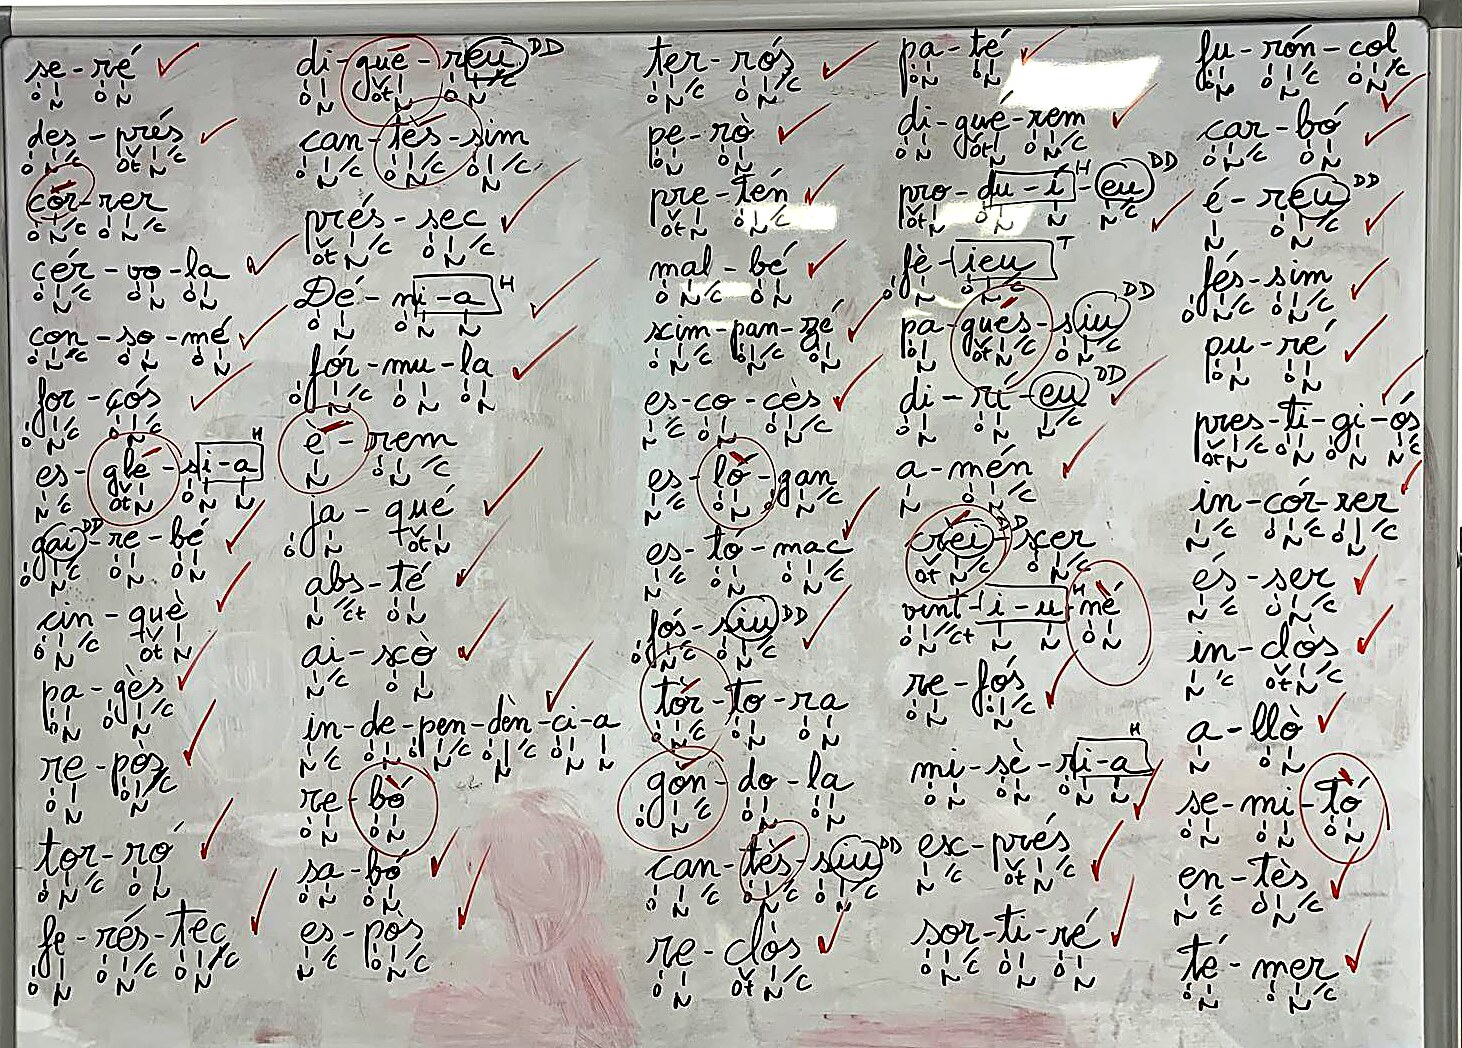 se-ré
des-prés
còr-rer
cér-vo-la
con-so-mé
for-çós
es-glé-si-a H
gai-re-bé DD
cin-què
pa-gès
re-pòs
tor-ró
fe-rés-tec
di-gué-reu DD
can-tès-sim
prés-sec
Dé-ni-a H
fór-mu-la
è-rem
ja-qué
abs-té
ai-xò
in-de-pen-dèn-ci-a
re-bó
sa-bó
es-pòs
ter-rós
pe-rò
pre-tén
mal-bé
xim-pan-zé
es-co-cès
es-lò-gan
es-tó-mac
fós-siu DD
tòr-to-ra
gón-do-la
can-tès-siu DD
re-clòs
pa-té
di-gué-rem
pro-du-í-eu H DD
fè-ieu T
pa-gués-siu DD
di-rí-eu DD
a-mén
crèi-xer DD
vint-i-u-nè H
re-fós
mi-sè-ri-a H
ex-prés
sor-ti-ré
fu-rón-col
car-bó
é-reu DD
fés-sim
pu-ré
pres-ti-gi-ós
in-cór-rer
és-ser
in-clòs
a-llò
se-mi-tó
en-tès
té-mer